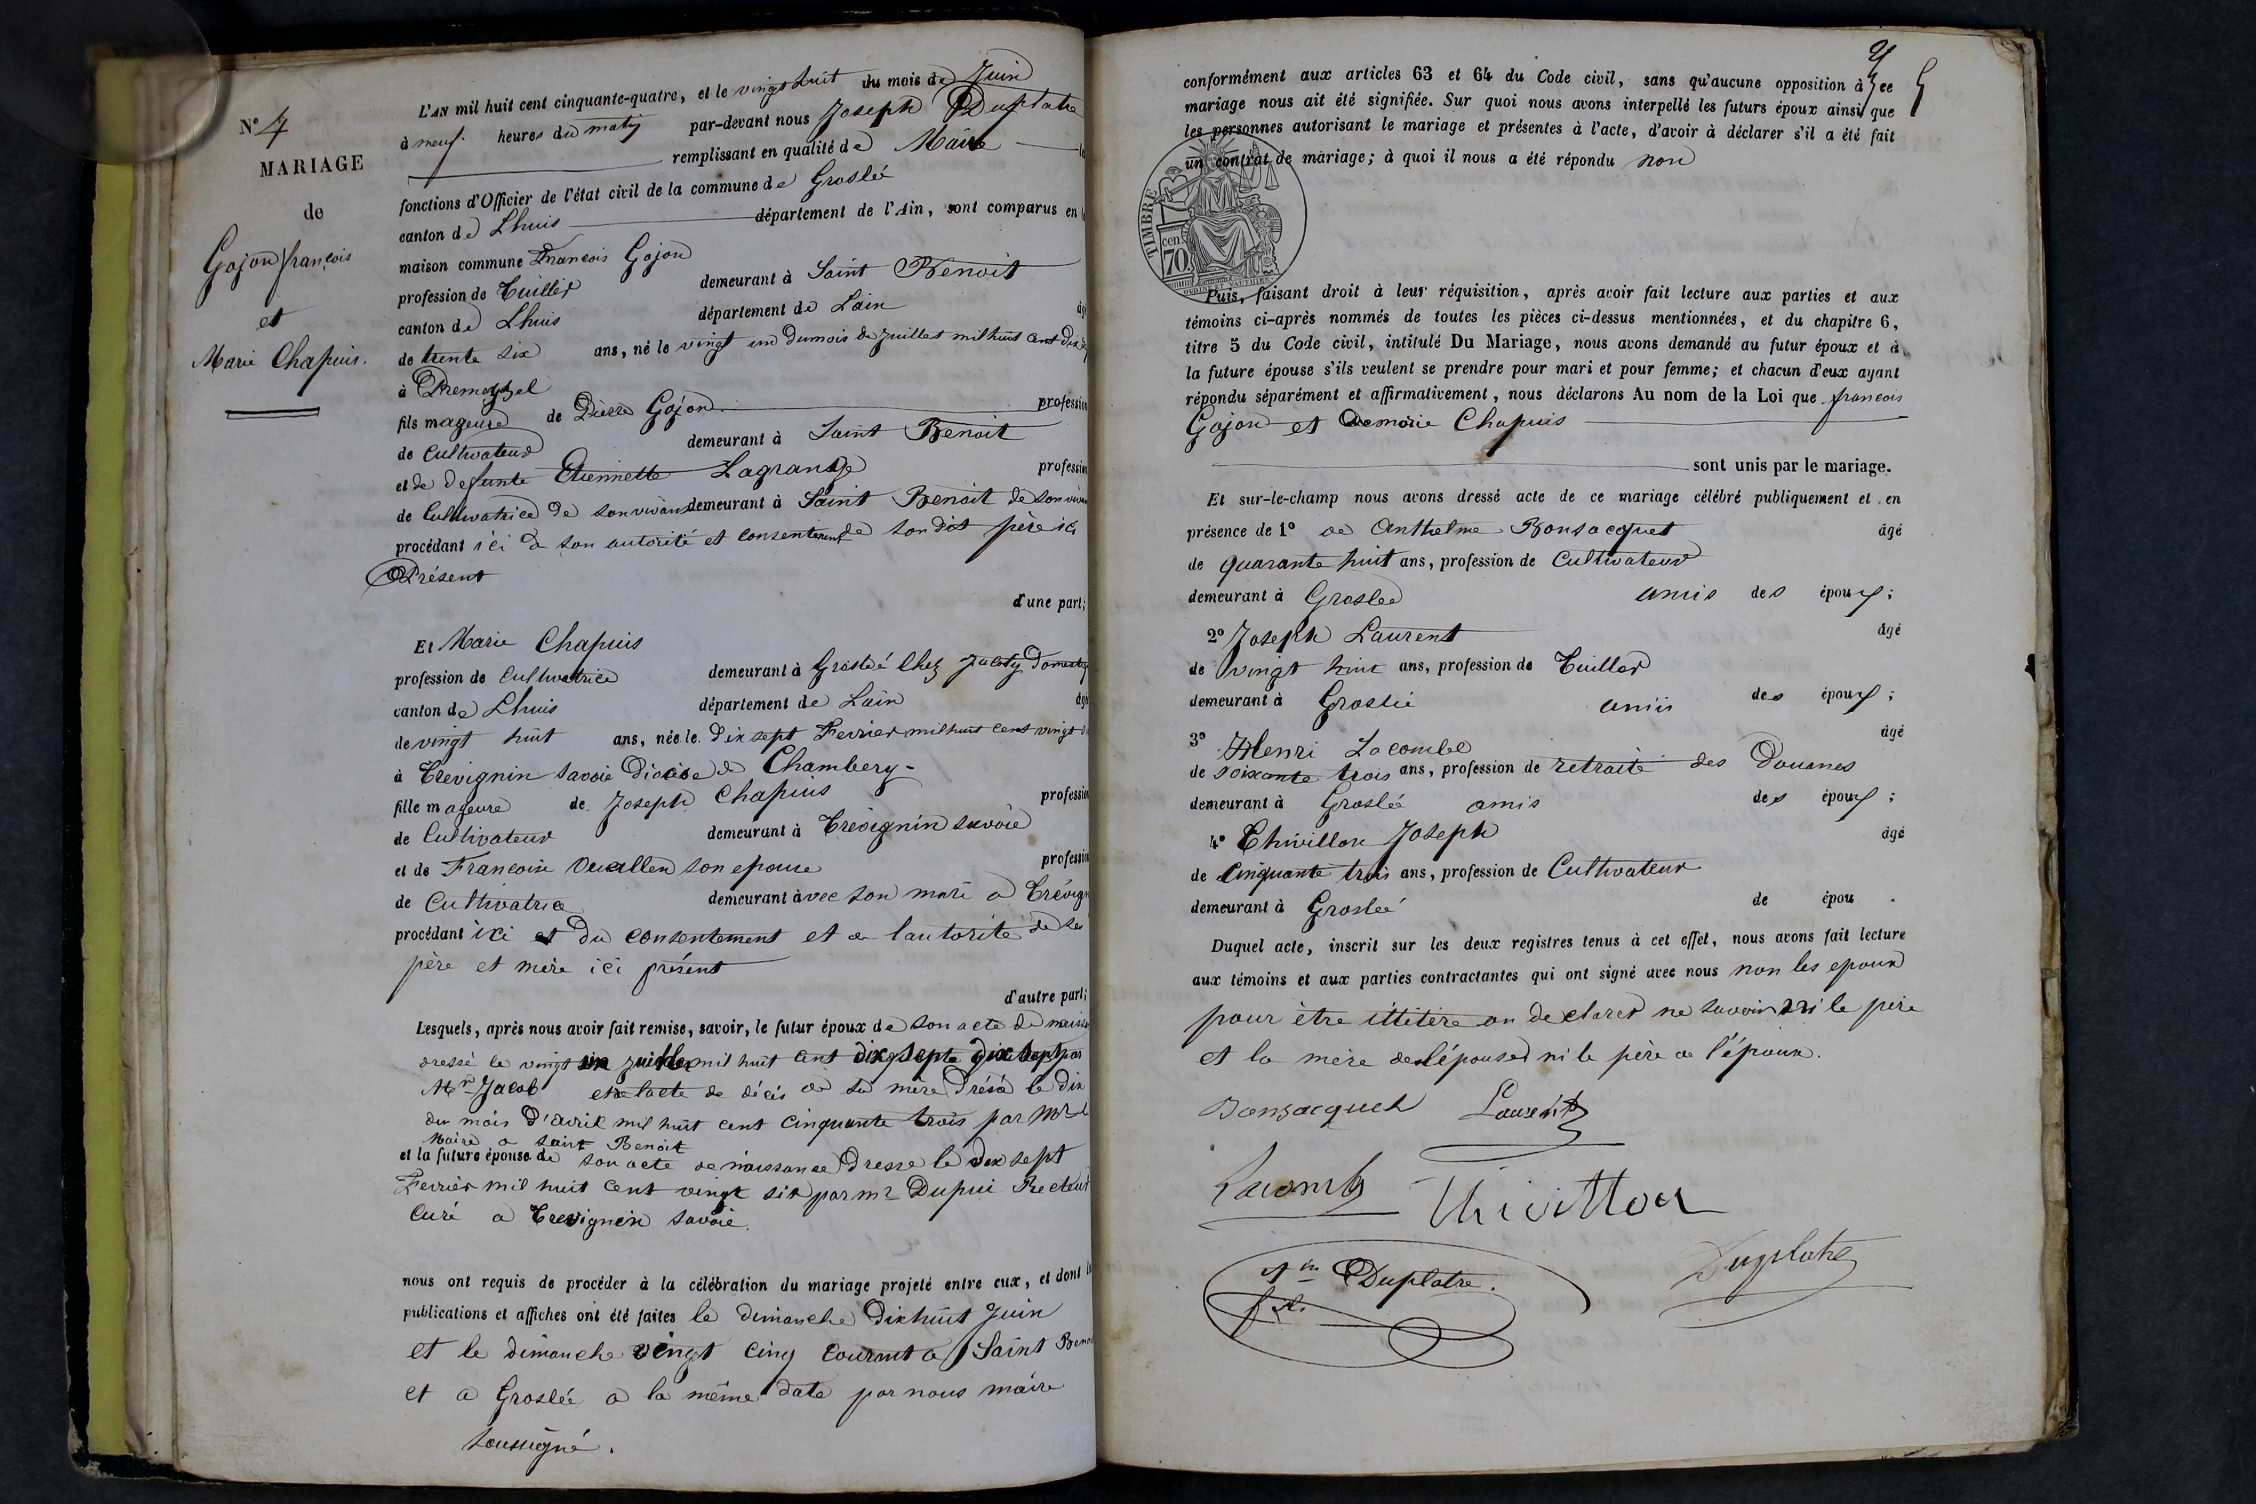 N° 4
MARIAGE
de
Gojon françois
et
Marie Chapuis.
L'AN mil huit cent cinquante-quatre, et le vingt huit du mois de Juin
à neuf heures du matin par-devant nous Joseph Duplatre
remplissant en qualité de Maire
fonctions d'Officier de l'état civil de la commune de Groslée
canton de Lhuis département de l'Ain, sont comparus en
maison commune Francois Gojon
profession de Tuillier demeurant à Saint Benoit
canton de Lhuis département de Lain
de trente six ans, né le vingt un du mois de juillet mil huit cent
à
fils mageure de Pierre Gojon profession
de Cultivateur demeurant à Saint Benoit
et de defunte Etiennette Lagrange profession
de Cultivatrice de son vivant demeurant à Saint Benoit de son
procédant ici de son autorité et consentement de son dit père ici
Présent
d'une part;
Et Marie Chapuis
profession de Cultivatrice demeurant à Groslée Chez
canton de Lhuis département de Lain
de vingt huit ans, née le Dix sept Fevrier mil huit cent vingt
à Trevignin Savoie Diocèse de Chambery
fille mageure de Joseph Chapuis profession
de Cultivateur demeurant à Trevignin savoie
et de Francoise son epouse profession
de Cultivatrice demeurant avec son mari a
procédant ici et du consentement et de l'autorité de
père et mère ici présent
d'autre part;
Lesquels, après nous avoir fait remise, savoir, le futur époux de son acte de
dressé le vingt un juillet mil huit cent dix sept par
Mr Jacob et lacte de décès de sa mère Drésé le dix
du mois d'avril mil huit cent cinquante trois par Mr
Maire a saint Benoit
et la future épouse de son acte de naissance Dresse le dix sept
Fevrier mil huit cent vingt six par mr Dupui Recteur
Curé a Trevignin savoie.
nous ont requis de procéder à la célébration du mariage projeté entre eux, et dont
publications et affiches ont été faites le dimanche Dixhuit Juin
et le dimanche vingt cinq courant a Saint
et a Groslée a la même date par nous maire
soussigné.
5
conformément aux articles 63 et 64 du Code civil, sans qu'aucune opposition à ce
mariage nous ait été signifiée. Sur quoi nous avons interpellé les futurs époux ainsi que
les personnes autorisant le mariage et présentes à l'acte, d'avoir à déclarer s'il a été fait
un contrat de mariage; à quoi il nous a été répondu non
TIMBRE
cen.
70
Puis, faisant droit à leur réquisition, après avoir fait lecture aux parties et aux
témoins ci-après nommés de toutes les pièces ci-dessus mentionnées, et du chapitre 6,
titre 5 du Code civil, intitulé Du Mariage, nous avons demandé au futur époux et à
la future épouse s'ils veulent se prendre pour mari et pour femme; et chacun d'eux ayant
répondu séparément et affirmativement, nous déclarons Au nom de la Loi que francois
Gojon et Chapuis
sont unis par le mariage.
Et sur-le-champ nous avons dressé acte de ce mariage célébré publiquement et en
présence de 1° de Anthelme Bonsacquet âgé
de quarante huit ans, profession de Cultivateur
demeurant à Groslée amis des époux;
2° Joseph Laurent âgé
de vingt huit ans, profession de Tuillier
demeurant à Groslée amis des époux;
3° Henri Lacombe âgé
de soixante trois ans, profession de retraité des Douanes
demeurant à Groslée amis des époux;
4° Thivillon Joseph âgé
de Cinquante trois ans, profession de Cultivateur
demeurant à Groslée de épou
Duquel acte, inscrit sur les deux registres tenus à cet effet, nous avons fait lecture
aux témoins et aux parties contractantes qui ont signé avec nous non les epoux
pour être illitère on declaret ne savoir ni le père
et la mère de lépouse ni le père de l'époux.
Bonsacquet Laurent
Lacombe Thivillon
Duplatre. Duplatre